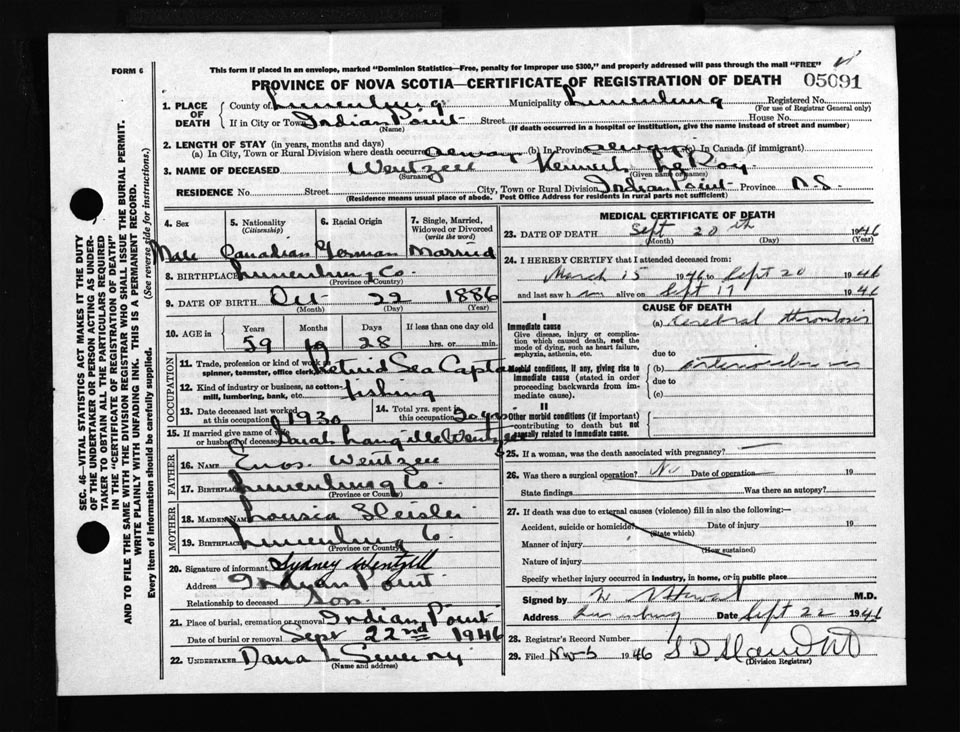 FORM 6
This form if placed in an envelope, marked "Dominion Statistics—Free, penalty for improper use $300," and properly addressed will pass through the mail "FREE"
PROVINCE OF NOVA SCOTIA—CERTIFICATE OF REGISTRATION OF DEATH 05091
1. PLACE OF DEATH County of Lunenburg Municipality of Lunenburg Registered No.
(For use of Registrar General only)
If in City or Town Indian Point Street House No.
(Name) (If death occurred in a hospital or institution, give the name instead of street and number)
2. LENGTH OF STAY (in years, months and days)
(a) In City, Town or Rural Division where death occurred always (b) In Province always (c) In Canada (if immigrant)
3. NAME OF DECEASED Wentzell Kenneth LeRoy
(Surname) (Given name or names)
RESIDENCE No. Street City, Town or Rural Division Indian Point Province N.S.
(Residence means usual place of abode. Post Office Address for residents in rural parts not sufficient)
4. Sex 5. Nationality (Citizenship) 6. Racial Origin 7. Single, Married, Widowed or Divorced (write the word)
Male Canadian German Married
8. BIRTHPLACE Lunenburg Co.
(Province or Country)
9. DATE OF BIRTH Oct 22 1886
(Month) (Day) (Year)
10. AGE in Years Months Days If less than one day old
59 28 hrs. or min.
OCCUPATION
11. Trade, profession or kind of work as spinner, teamster, office clerk, Retired Sea Captain
12. Kind of industry or business, as cotton-mill, lumbering, bank, etc. fishing
13. Date deceased last worked at this occupation 1930 14. Total yrs. spent in this occupation 20 yrs
15. If married give name of wife or husband of deceased Sarah Langille Wentzell
FATHER
16. NAME Enos Wentzell
17. BIRTHPLACE Lunenburg Co.
(Province or Country)
MOTHER
18. MAIDEN NAME Lousia
19. BIRTHPLACE Lunenburg Co.
(Province or Country)
20. Signature of informant Sydney Wentzell
Address Indian Point
Relationship to deceased Son
21. Place of burial, cremation or removal Indian Point
Date of burial or removal Sept 22nd 1946
22. UNDERTAKER Dana L Sweeny
(Name and address)
MEDICAL CERTIFICATE OF DEATH
23. DATE OF DEATH Sept 20th 1946
(Month) (Day) (Year)
24. I HEREBY CERTIFY that I attended deceased from:
March 15 1946 to Sept 20 1946
and last saw him alive on Sept 17 1946
CAUSE OF DEATH
I
Immediate cause (a) Cerebral thrombosis
Give disease, injury or complication which caused death, not the mode of dying, such as heart failure, asphyxia, asthenia, etc.
due to
Morbid conditions, if any, giving rise to immediate cause (stated in order proceeding backwards from immediate cause). (b) arteriosclerosis
due to
(c)
II
Other morbid conditions (if important) contributing to death but not causally related to immediate cause.
25. If a woman, was the death associated with pregnancy? —
26. Was there a surgical operation? No Date of operation — 19
State findings Was there an autopsy?
27. If death was due to external causes (violence) fill in also the following:—
Accident, suicide or homicide? Date of injury 19
(State which)
Manner of injury
(How sustained)
Nature of injury
Specify whether injury occurred in industry, in home, or in public place
Signed by M.D.
Address Lunenburg Date Sept 22 1946
28. Registrar's Record Number
29. Filed Nov 5 1946
(Division Registrar)
SEC. 46—VITAL STATISTICS ACT MAKES IT THE DUTY
OF THE UNDERTAKER OR PERSON ACTING AS UNDER-
TAKER TO OBTAIN ALL THE PARTICULARS REQUIRED
IN THE "CERTIFICATE OF REGISTRATION OF DEATH"
AND TO FILE THE SAME WITH THE DIVISION REGISTRAR WHO SHALL ISSUE THE BURIAL PERMIT.
WRITE PLAINLY WITH UNFADING INK. THIS IS A PERMANENT RECORD.
Every item of information should be carefully supplied. (See reverse side for instructions.)